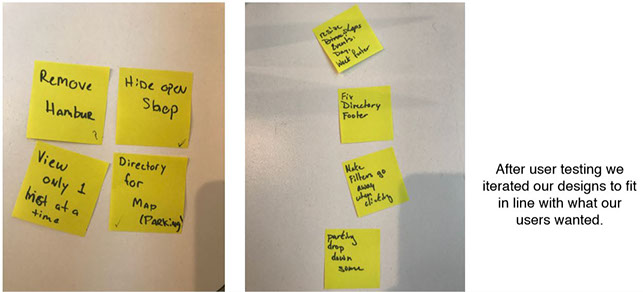 Remove
Hambur
?
Hide open
Shop
View
only 1
at a
time
Directory
for
Map
(Parking)
resize
Events.
Day,
Week footer
Fix
Directory
Footer
Make
Filters go
away
when
clicking
parking
drop
down
some
After user testing we
iterated our designs to fit
in line with what our
users wanted.